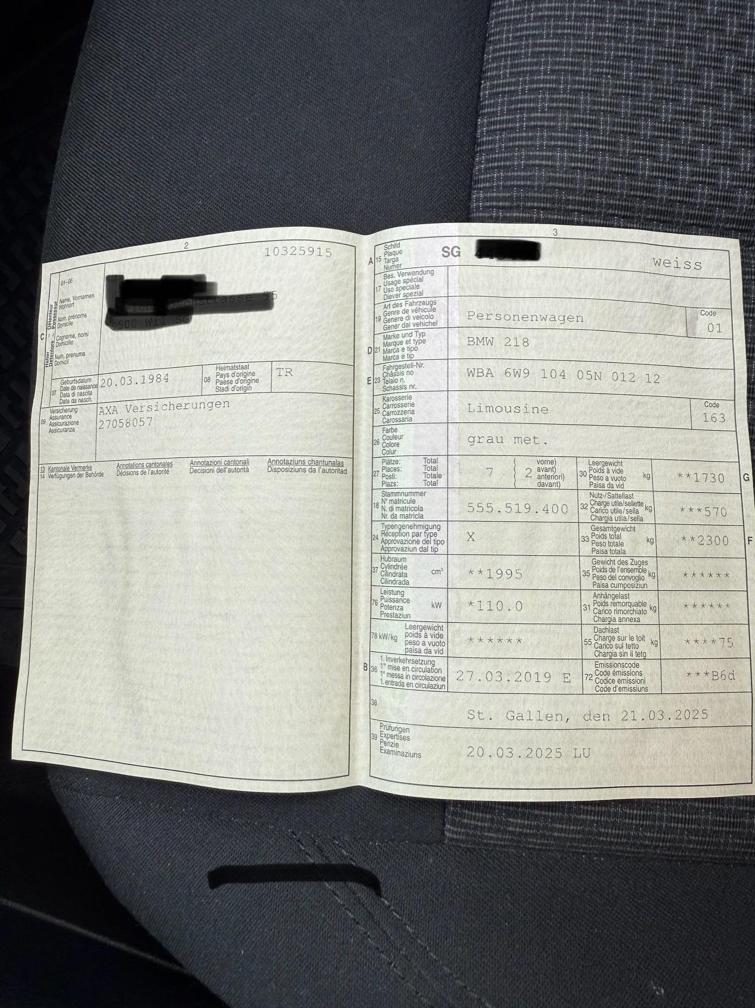 2
10325915
C
01-06
Name, Vornamen
Wohnort
Nom, prénoms
Domicile
Cognome, nomi
Domicilio
Num, prenums
Domicil
07
Geburtsdatum
Date de naissance
Data di nascita
Data da nasch.
20.03.1984
08
Heimatstaat
Pays d'origine
Paese d'origine
Stadi d'origin
TR
09
Versicherung
Assurance
Assicurazione
Assicuranza
AXA Versicherungen
27058057
13
14
Kantonale Vermerke
Verfügungen der Behörde
Annotations cantonales
Décisions de l'autorité
Annotazioni cantonali
Decisioni dell'autorità
Annotaziuns chantunalas
Disposiziuns da l'autoritad
3
A
15
Schild
Plaque
Targa
Numer
SG
weiss
17
Bes. Verwendung
Usage spécial
Uso speciale
Diever spezial
19
Art des Fahrzeugs
Genre de véhicule
Genere di veicolo
Gener dal vehichel
Personenwagen
Code
01
D
21
Marke und Typ
Marque et type
Marca e tipo
Marca e tip
BMW 218
E
23
Fahrgestell-Nr.
Châssis no
Telaio n.
Schassis nr.
WBA 6W9 104 05N 012 12
25
Karosserie
Carrosserie
Carrozzeria
Carossaria
Limousine
Code
163
26
Farbe
Couleur
Colore
Colur
grau met.
27
Plätze: Total
Places: Total
Posti: Totale
Plazs: Total
7
2
vorne)
avant)
anteriori)
davant)
30
Leergewicht
Poids à vide
Peso a vuoto
Paisa da vid
kg
**1730
G
18
Stammnummer
N° matricule
N. di matricola
Nr. da matricla
555.519.400
32
Nutz-/Sattellast
Charge utile/sellette
Carico utile/sella
Chargia utila/sella
kg
***570
24
Typengenehmigung
Réception par type
Approvazione del tipo
Approvaziun dal tip
X
33
Gesamtgewicht
Poids total
Peso totale
Paisa totala
kg
**2300
F
37
Hubraum
Cylindrée
Cilindrata
Cilindrada
cm³
**1995
35
Gewicht des Zuges
Poids de l'ensemble
Peso del convoglio
Paisa cumposiziun
kg
******
76
Leistung
Puissance
Potenza
Prestaziun
kW
*110.0
31
Anhängelast
Poids remorquable
Carico rimorchiato
Chargia annexa
kg
******
78 kW/kg
Leergewicht
poids à vide
peso a vuoto
paisa da vid
******
55
Dachlast
Charge sur le toit
Carico sul tetto
Chargia sin il tetg
kg
****75
B
36
1. Inverkehrsetzung
1re mise en circulation
1a messa in circolazione
1. entrada en circulaziun
27.03.2019 E
72
Emissionscode
Code émissions
Codice emissioni
Code d'emissiuns
***B6d
38
St. Gallen, den 21.03.2025
39
Prüfungen
Expertises
Perizie
Examinaziuns
20.03.2025 LU